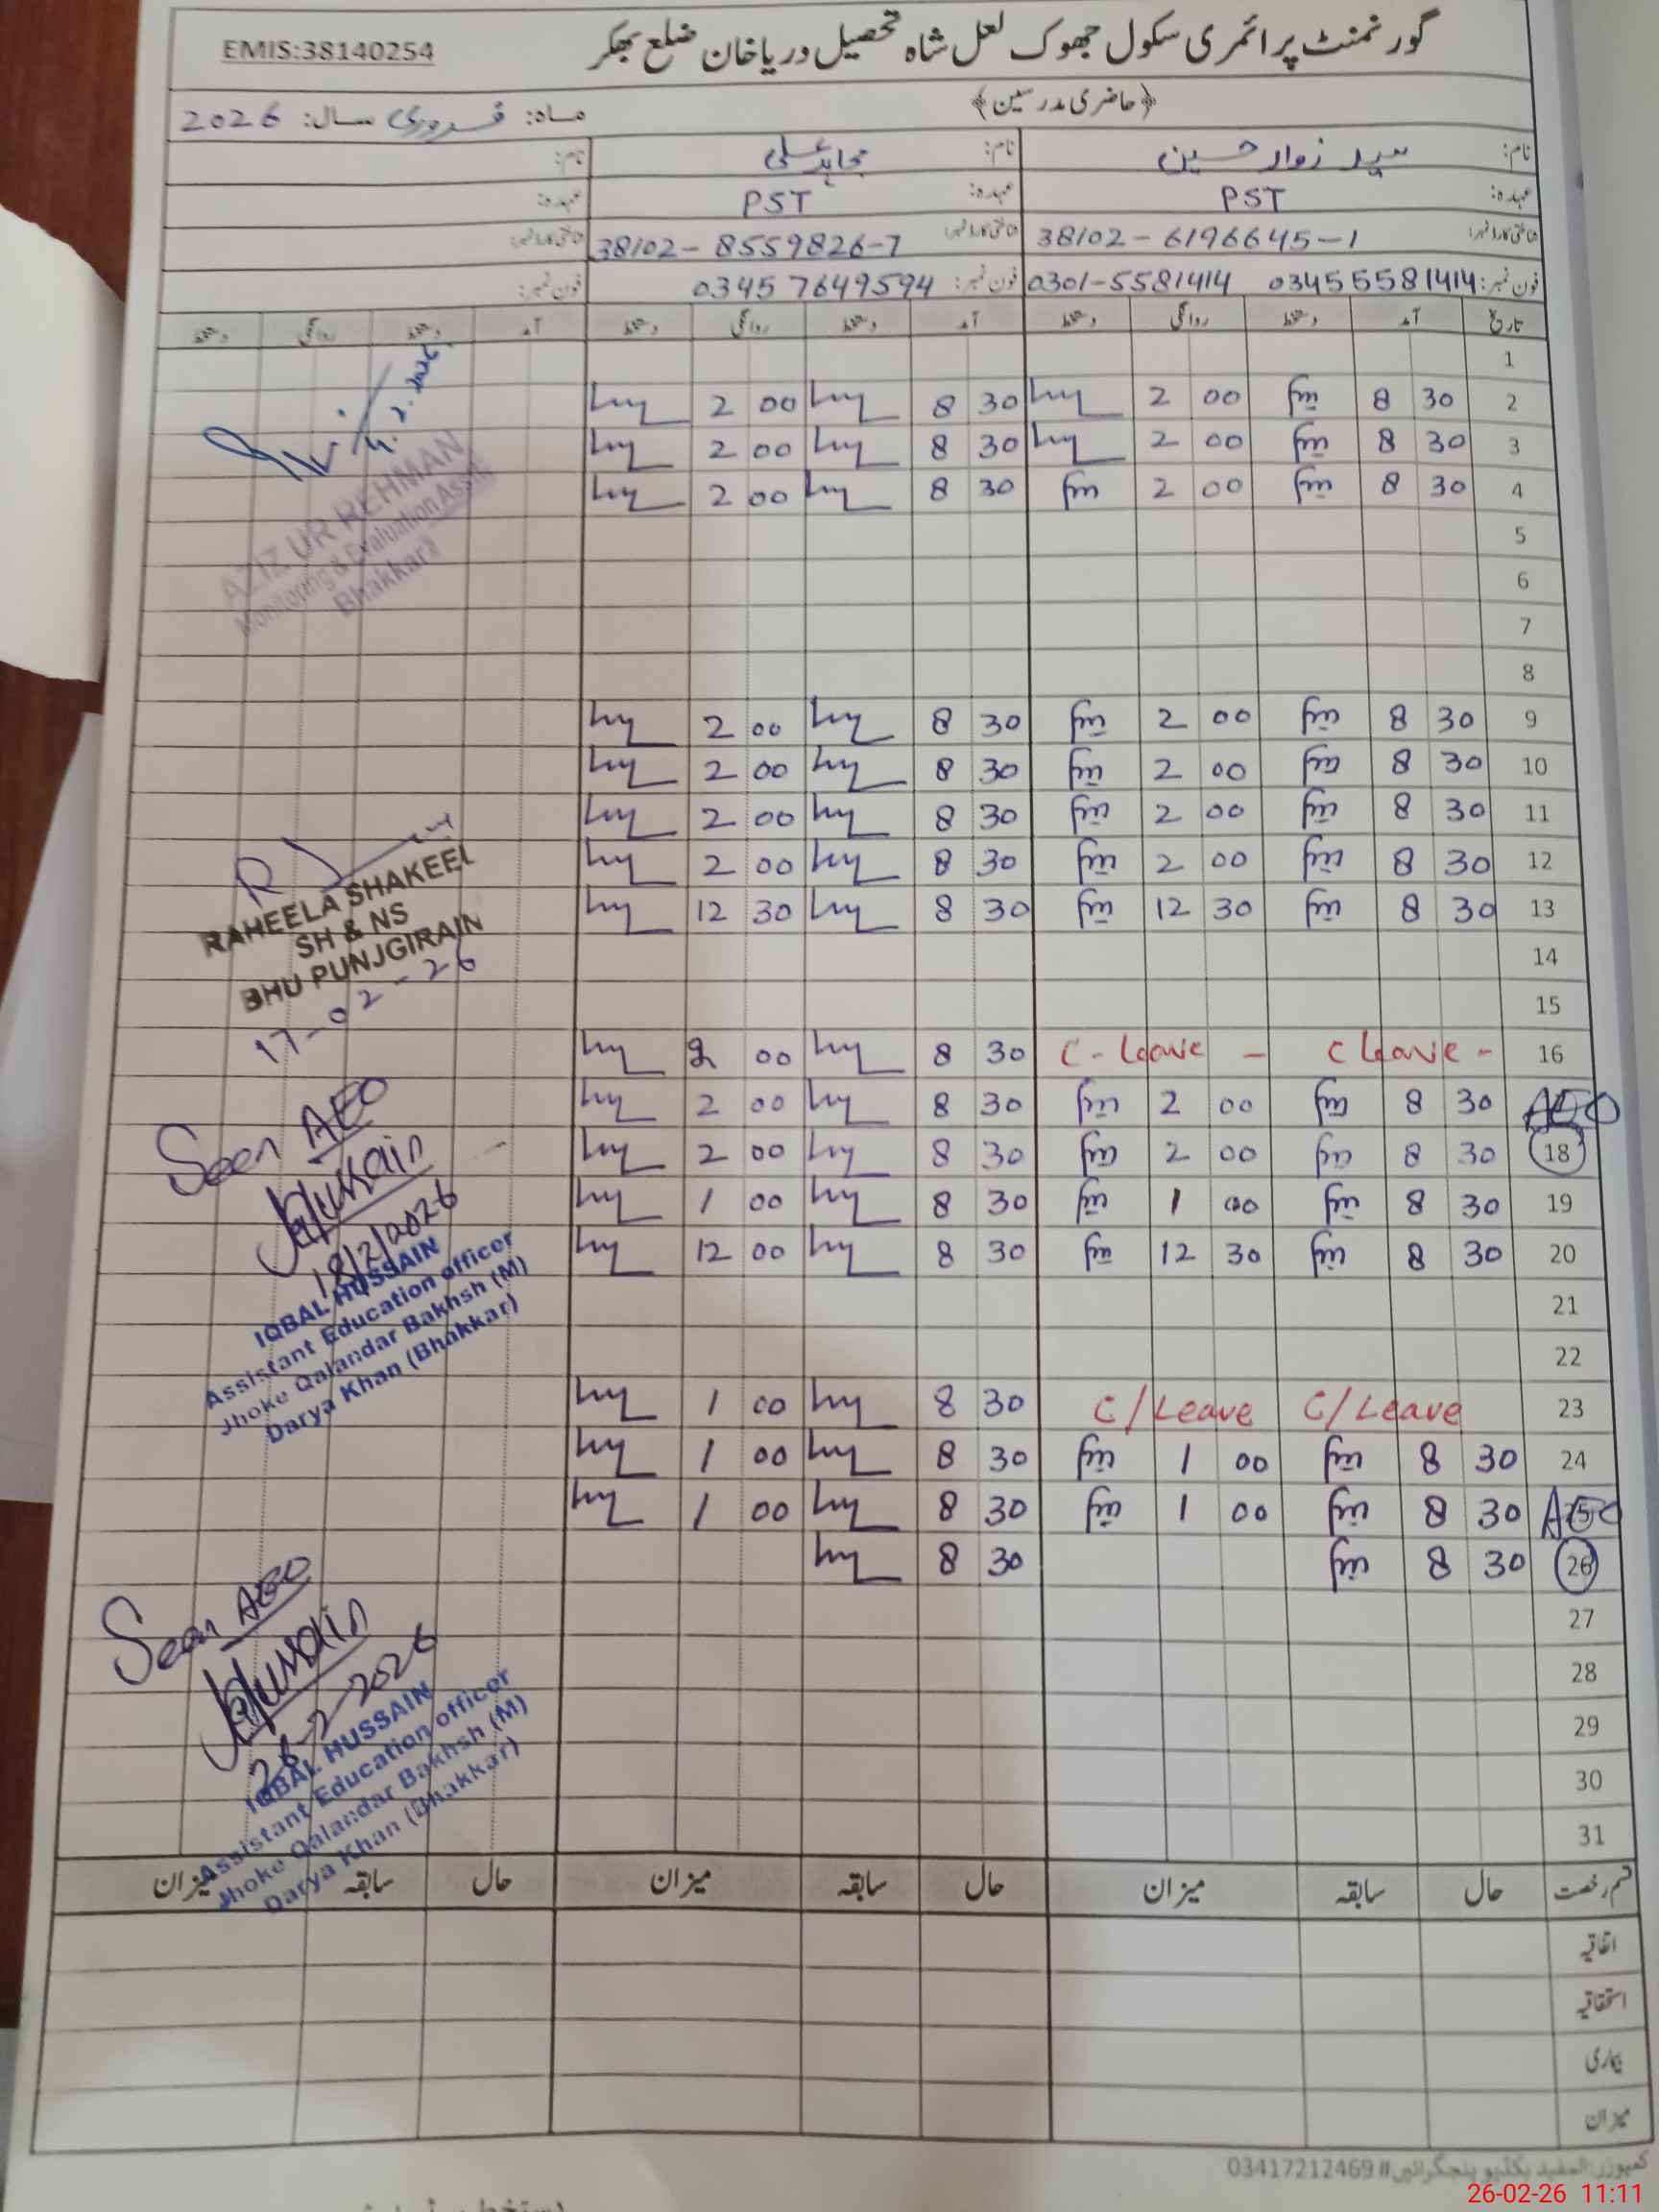 گورنمنٹ پرائمری سکول جھوک لعل شاہ تحصیل دریاخان ضلع بھکر EMIS:38140254
﴿حاضری مدرسین﴾
ماہ: فروری سال: 2026
نام: سید زوار حسین نام: مجاہد علی نام:
عہدہ: PST عہدہ: PST عہدہ:
شناختی کارڈ نمبر: 38102-6196645-1 شناختی کارڈ نمبر: 38102-8559826-7 شناختی کارڈ نمبر:
فون نمبر: 03455581414 0301-5581414 فون نمبر: 03457649594 فون نمبر:
تاریخ آمد دستخط روانگی دستخط آمد دستخط روانگی دستخط آمد دستخط روانگی دستخط
1
2 8 30 2 00 8 30 2 00
3 8 30 2 00 8 30 2 00
4 8 30 2 00 8 30 2 00
5
6
7
8
9 8 30 2 00 8 30 2 00
10 8 30 2 00 8 30 2 00
11 8 30 2 00 8 30 2 00
12 8 30 2 00 8 30 2 00
13 8 30 12 30 8 30 12 30
14
15
16 C Leave - C-Leave - 8 30 2 00
AEO 8 30 2 00 8 30 2 00
18 8 30 2 00 8 30 2 00
19 8 30 1 00 8 30 1 00
20 8 30 12 30 8 30 12 00
21
22
23 C/Leave C/Leave 8 30 1 00
24 8 30 1 00 8 30 1 00
25 AEO 8 30 1 00 8 30 1 00
26 8 30 8 30
27
28
29
30
31
AZIZ UR REHMAN
Monitoring & Evaluation Asstt
Bhakkar
RAHEELA SHAKEEL
SH & NS
BHU PUNJGIRAIN
17-02-26
Seen AEO
Hussain
18/2/2026
IQBAL HUSSAIN
Assistant Education officer
Jhoke Qalandar Bakhsh (M)
Darya Khan (Bhakkar)
Seen AEO
Hussain
26-2-2026
IQBAL HUSSAIN
Assistant Education officer
Jhoke Qalandar Bakhsh (M)
Darya Khan (Bhakkar)
قسم رخصت حال سابقہ میزان حال سابقہ میزان حال سابقہ میزان
اتفاقیہ
استحقاقیہ
بیماری
میزان
کمپوزر: المفید بکڈپو پنجگرائیں# 03417212469
26-02-26 11:11